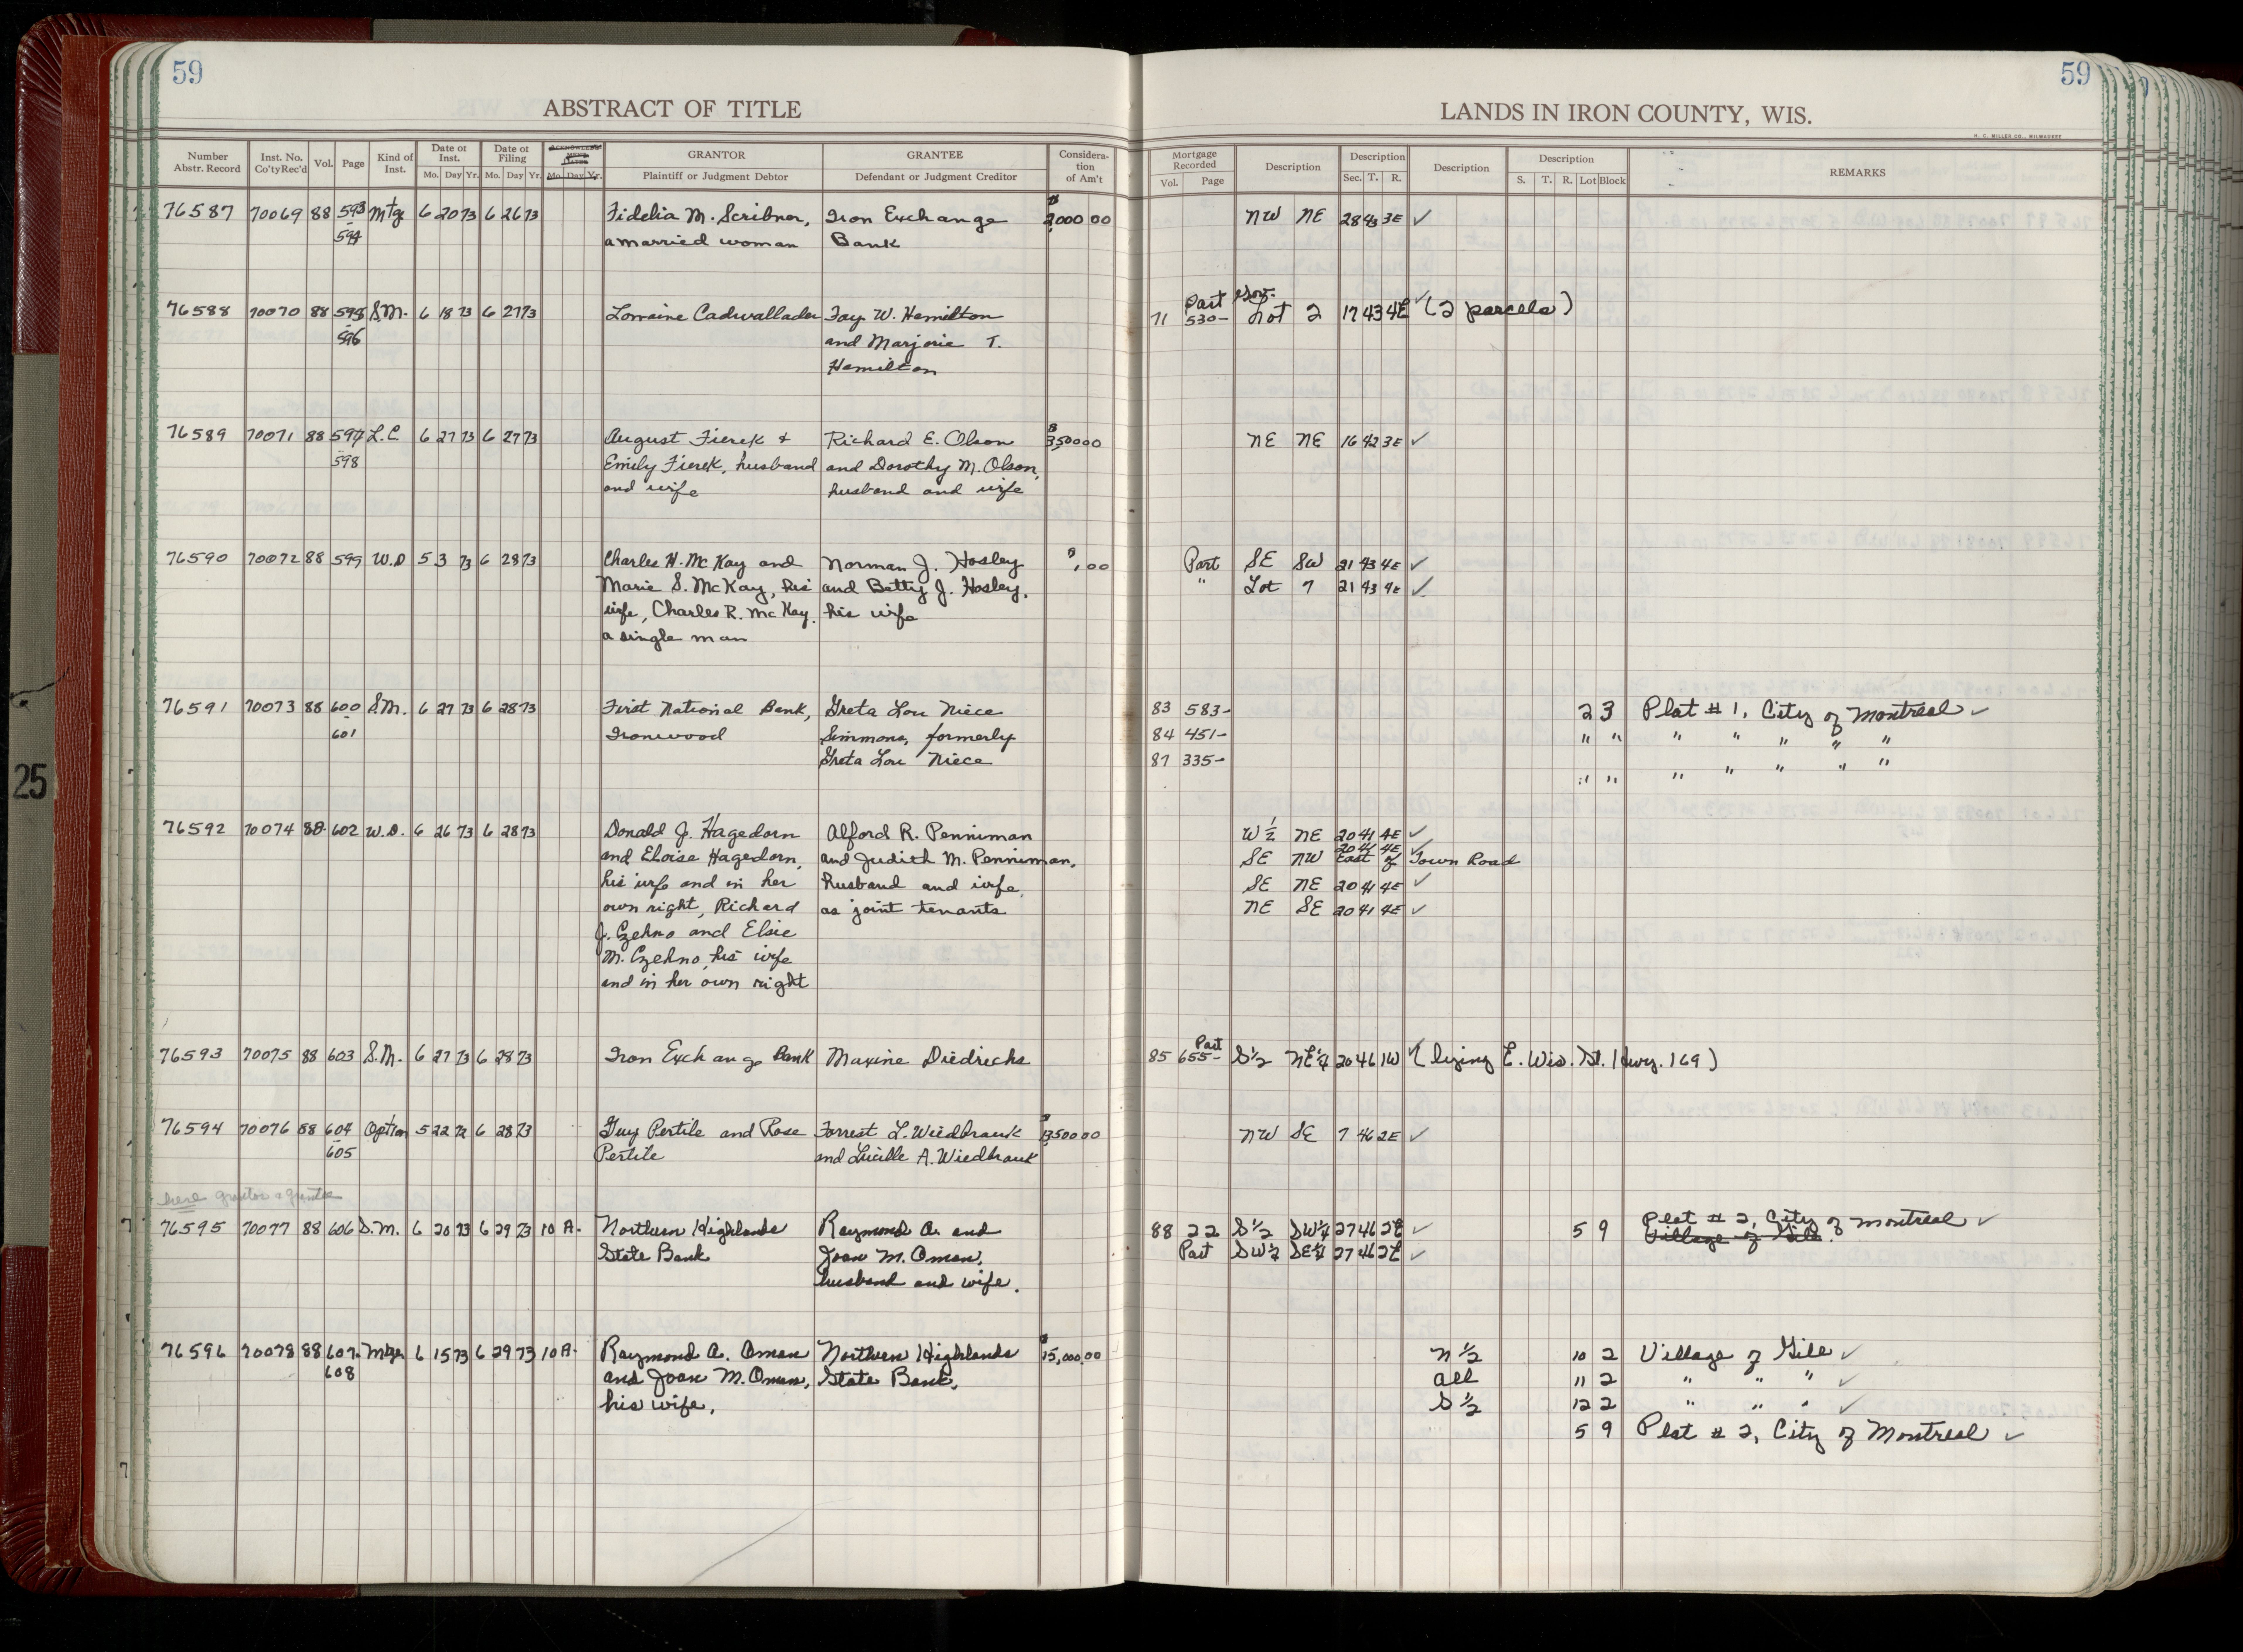 59
59
ABSTRACT OF TITLE
LANDS IN IRON COUNTY, WIS.
H. C. MILLER CO., MILWAUKEE
Number Abstr. Record Inst. No. Co'ty Rec'd Vol. Page Kind of Inst. Date of Inst. Mo. Day Yr. Date of Filing Mo. Day Yr. Mo. Day Yr. GRANTOR Plaintiff or Judgment Debtor GRANTEE Defendant or Judgment Creditor Considera-tion of Am't
Mortgage Recorded Vol. Page Description Description Sec. T. R. Description Description S. T. R. Lot Block REMARKS
76587 70069 88 593 Mtg 6 20 73 6 26 73 Fidelia M. Scribner, Iron Exchange $2,000 00 NW NE 28 43 3E ✓
594 a married woman Bank
76588 70070 88 595 S.M. 6 18 73 6 27 73 Lorraine Cadwallader Fay W. Hamilton 71 Part 530- Gov. Lot 2 17 43 4E ✓ (2 parcels)
596 and Marjorie T.
Hamilton
76589 70071 88 597 L.C 6 27 73 6 27 73 August Fierek + Richard E. Olson $3,500 00 NE NE 16 42 3E ✓
598 Emily Fierek, husband and Dorothy M. Olson,
and wife husband and wife
76590 70072 88 599 W.D 5 3 73 6 28 73 Charles H. McKay and Norman J. Hosley $1,00 Part SE SW 21 43 4E ✓
Marie S. McKay, his and Betty J. Hosley, " Lot 7 21 43 4E ✓
wife, Charles R. McKay, his wife
a single man
76591 70073 88 600 S.M. 6 27 73 6 28 73 First National Bank, Greta Lou Niece 83 583- 2 3 Plat # 1, City of Montreal ✓
601 Ironwood Simmons, formerly 84 451- " " " " " " "
Greta Lou Niece 87 335- " " " " " " "
76592 70074 88 602 W.D. 6 26 73 6 28 73 Donald J. Hagedorn Alford R. Penniman W 1/2 NE 20 41 4E ✓
and Eloise Hagedorn, and Judith M. Penniman, SE NW 20 41 4E ✓ East of Town Road
his wife and in her husband and wife, SE NE 20 41 4E ✓
own right, Richard as joint tenants NE SE 20 41 4E ✓
J. Czehno and Elsie
M. Czehno, his wife
and in her own right
76593 70075 88 603 S.M. 6 27 73 6 28 73 Iron Exchange Bank Maxine Diedrichs 85 655- Part S1/2 NE1/4 20 46 1W ✓ (lying E. Wis. St. Hwy. 169)
76594 70076 88 604 Option 5 22 72 6 28 73 Guy Pertile and Rose Forrest L. Wiedbrauk 3500 00 NW SE 7 46 2E ✓
605 Pertile and Lucille A. Wiedbrauk
grantor & grantee
76595 70077 88 606 S.M. 6 20 73 6 29 73 10 A. Northern Highlands Raymond A. and 88 22 S1/2 SW1/4 27 46 2E ✓ 5 9 Plat # 2, City of Montreal ✓
State Bank Joan M. Oman, Part SW1/4 SE1/4 27 46 2E ✓ Village of Gile
husband and wife.
76596 70078 88 607- Mtge 6 15 73 6 29 73 10 A. Raymond A. Oman Northern Highlands $15,000.00 N 1/2 10 2 Village of Gile ✓
608 and Joan M. Oman, State Bank, all 11 2 " " " ✓
his wife, S 1/2 12 2 " " " ✓
5 9 Plat # 2, City of Montreal ✓
25